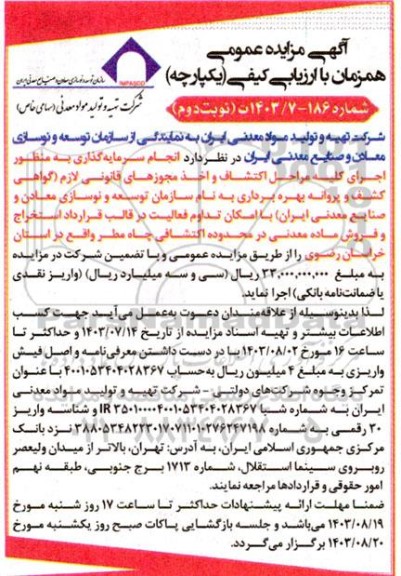 آگهی مزایده عمومی
همزمان با ارزیابی کیفی (یکپارچه)
IMPASCO
سازمان توسعه و نوسازی معادن و صنایع معدنی ایران
شرکت تهیه و تولید مواد معدنی (سهامی خاص)
شماره ۱۸۶-۱۴۰۳/۷ت (نوبت دوم)
شرکت تهیه و تولید مواد معدنی ایران به نمایندگی از سازمان توسعه و نوسازی
معادن و صنایع معدنی ایران در نظر دارد انجام سرمایه‌گذاری به منظور
اجرای کلیه مراحل اکتشاف و اخذ مجوزهای قانونی لازم (گواهی
کشف و پروانه بهره برداری به نام سازمان توسعه و نوسازی معادن و
صنایع معدنی ایران) با امکان تداوم فعالیت در قالب قرارداد استخراج
و فروش ماده معدنی در محدوده اکتشافی چاه مطر واقع در استان
خراسان رضوی را از طریق مزایده عمومی و با تضمین شرکت در مزایده
به مبلغ ۳۳,۰۰۰,۰۰۰,۰۰۰ ریال (سی و سه میلیارد ریال) (واریز نقدی
یا ضمانت‌نامه بانکی) اجرا نماید.
لذا بدینوسیله از علاقه‌مندان دعوت به‌عمل می‌آید جهت کسب
اطلاعات بیشتر و تهیه اسناد مزایده از تاریخ ۱۴۰۳/۰۷/۱۴ و حداکثر تا
ساعت ۱۶ مورخ ۱۴۰۳/۰۸/۰۲ با در دست داشتن معرفی‌نامه و اصل فیش
واریزی به مبلغ ۴ میلیون ریال به‌حساب ۴۰۰۱۰۵۳۴۰۴۰۲۸۳۶۷ با عنوان
تمرکز وجوه شرکت‌های دولتی - شرکت تهیه و تولید مواد معدنی
ایران به شماره شبا IR ۳۵۰۱۰۰۰۰۴۰۰۱۰۵۳۴۰۴۰۲۸۳۶۷ و شناسه واریز
۳۰ رقمی به شماره ۳۸۸۰۵۳۴۸۲۲۳۰۱۷۰۷۱۱۰۱۰۲۷۶۲۴۷۱۹۸ نزد بانک
مرکزی جمهوری اسلامی ایران، به آدرس: تهران، بالاتر از میدان ولیعصر
روبروی سینما استقلال، شماره ۱۷۱۳ برج جنوبی، طبقه نهم
امور حقوقی و قراردادها مراجعه نمایند.
ضمنا مهلت ارائه پیشنهادات حداکثر تا ساعت ۱۷ روز شنبه مورخ
۱۴۰۳/۰۸/۱۹ می‌باشد و جلسه بازگشایی پاکات صبح روز یکشنبه مورخ
۱۴۰۳/۰۸/۲۰ برگزار می‌گردد.